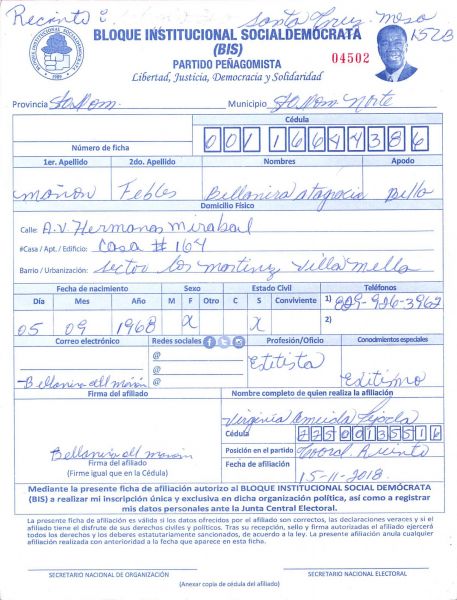 Recinto: Santa Cruz Mesa
1523
BLOQUE INSTITUCIONAL SOCIALDEMÓCRATA
(BIS)
PARTIDO PEÑAGOMISTA
Libertad, Justicia, Democracia y Solidaridad
04502
Provincia Sto Dom. Municipio Sto Dom Norte
Cédula
Número de ficha 001 1664438 6
1er. Apellido 2do. Apellido Nombres Apodo
mañon Febles Bellanira altagracia Bella
Domicilio Físico
Calle: A.V Hermanas Mirabal
#Casa / Apt. / Edificio: Casa # 164
Barrio / Urbanización: sector los martinez Villa Mella
Fecha de nacimiento Sexo Estado Civil Teléfonos
Día Mes Año M F Otro C S Conviviente 1) 829-926-3962
05 09 1968 X X 2)
Correo electrónico Redes sociales Profesión/Oficio Conocimientos especiales
@
@
@
Estitista
Bellanira del Estitismo
Firma del afiliado Nombre completo de quien realiza la afiliación
Virginia Almeida
Cédula 22500135516
Posición en el partido
Fecha de afiliación 15-11-2018
Bellanira del
Firma del afiliado
(Firme igual que en la Cédula)
Mediante la presente ficha de afiliación autorizo al BLOQUE INSTITUCIONAL SOCIAL DEMÓCRATA
(BIS) a realizar mi inscripción única y exclusiva en dicha organización política, así como a registrar
mis datos personales ante la Junta Central Electoral.
La presente ficha de afiliación es válida si los datos ofrecidos por el afiliado son correctos, las declaraciones veraces y si el
afiliado tiene el disfrute de sus derechos civiles y políticos. Tras su recepción, sello y firma autorizadas el afiliado ejercerá
todos los derechos y los deberes estatutariamente sancionados, de acuerdo a la ley. La presente afiliación anula cualquier
afiliación realizada con anterioridad a la fecha que aparece en esta ficha.
SECRETARIO NACIONAL DE ORGANIZACIÓN SECRETARIO NACIONAL ELECTORAL
(Anexar copia de cédula del afiliado)